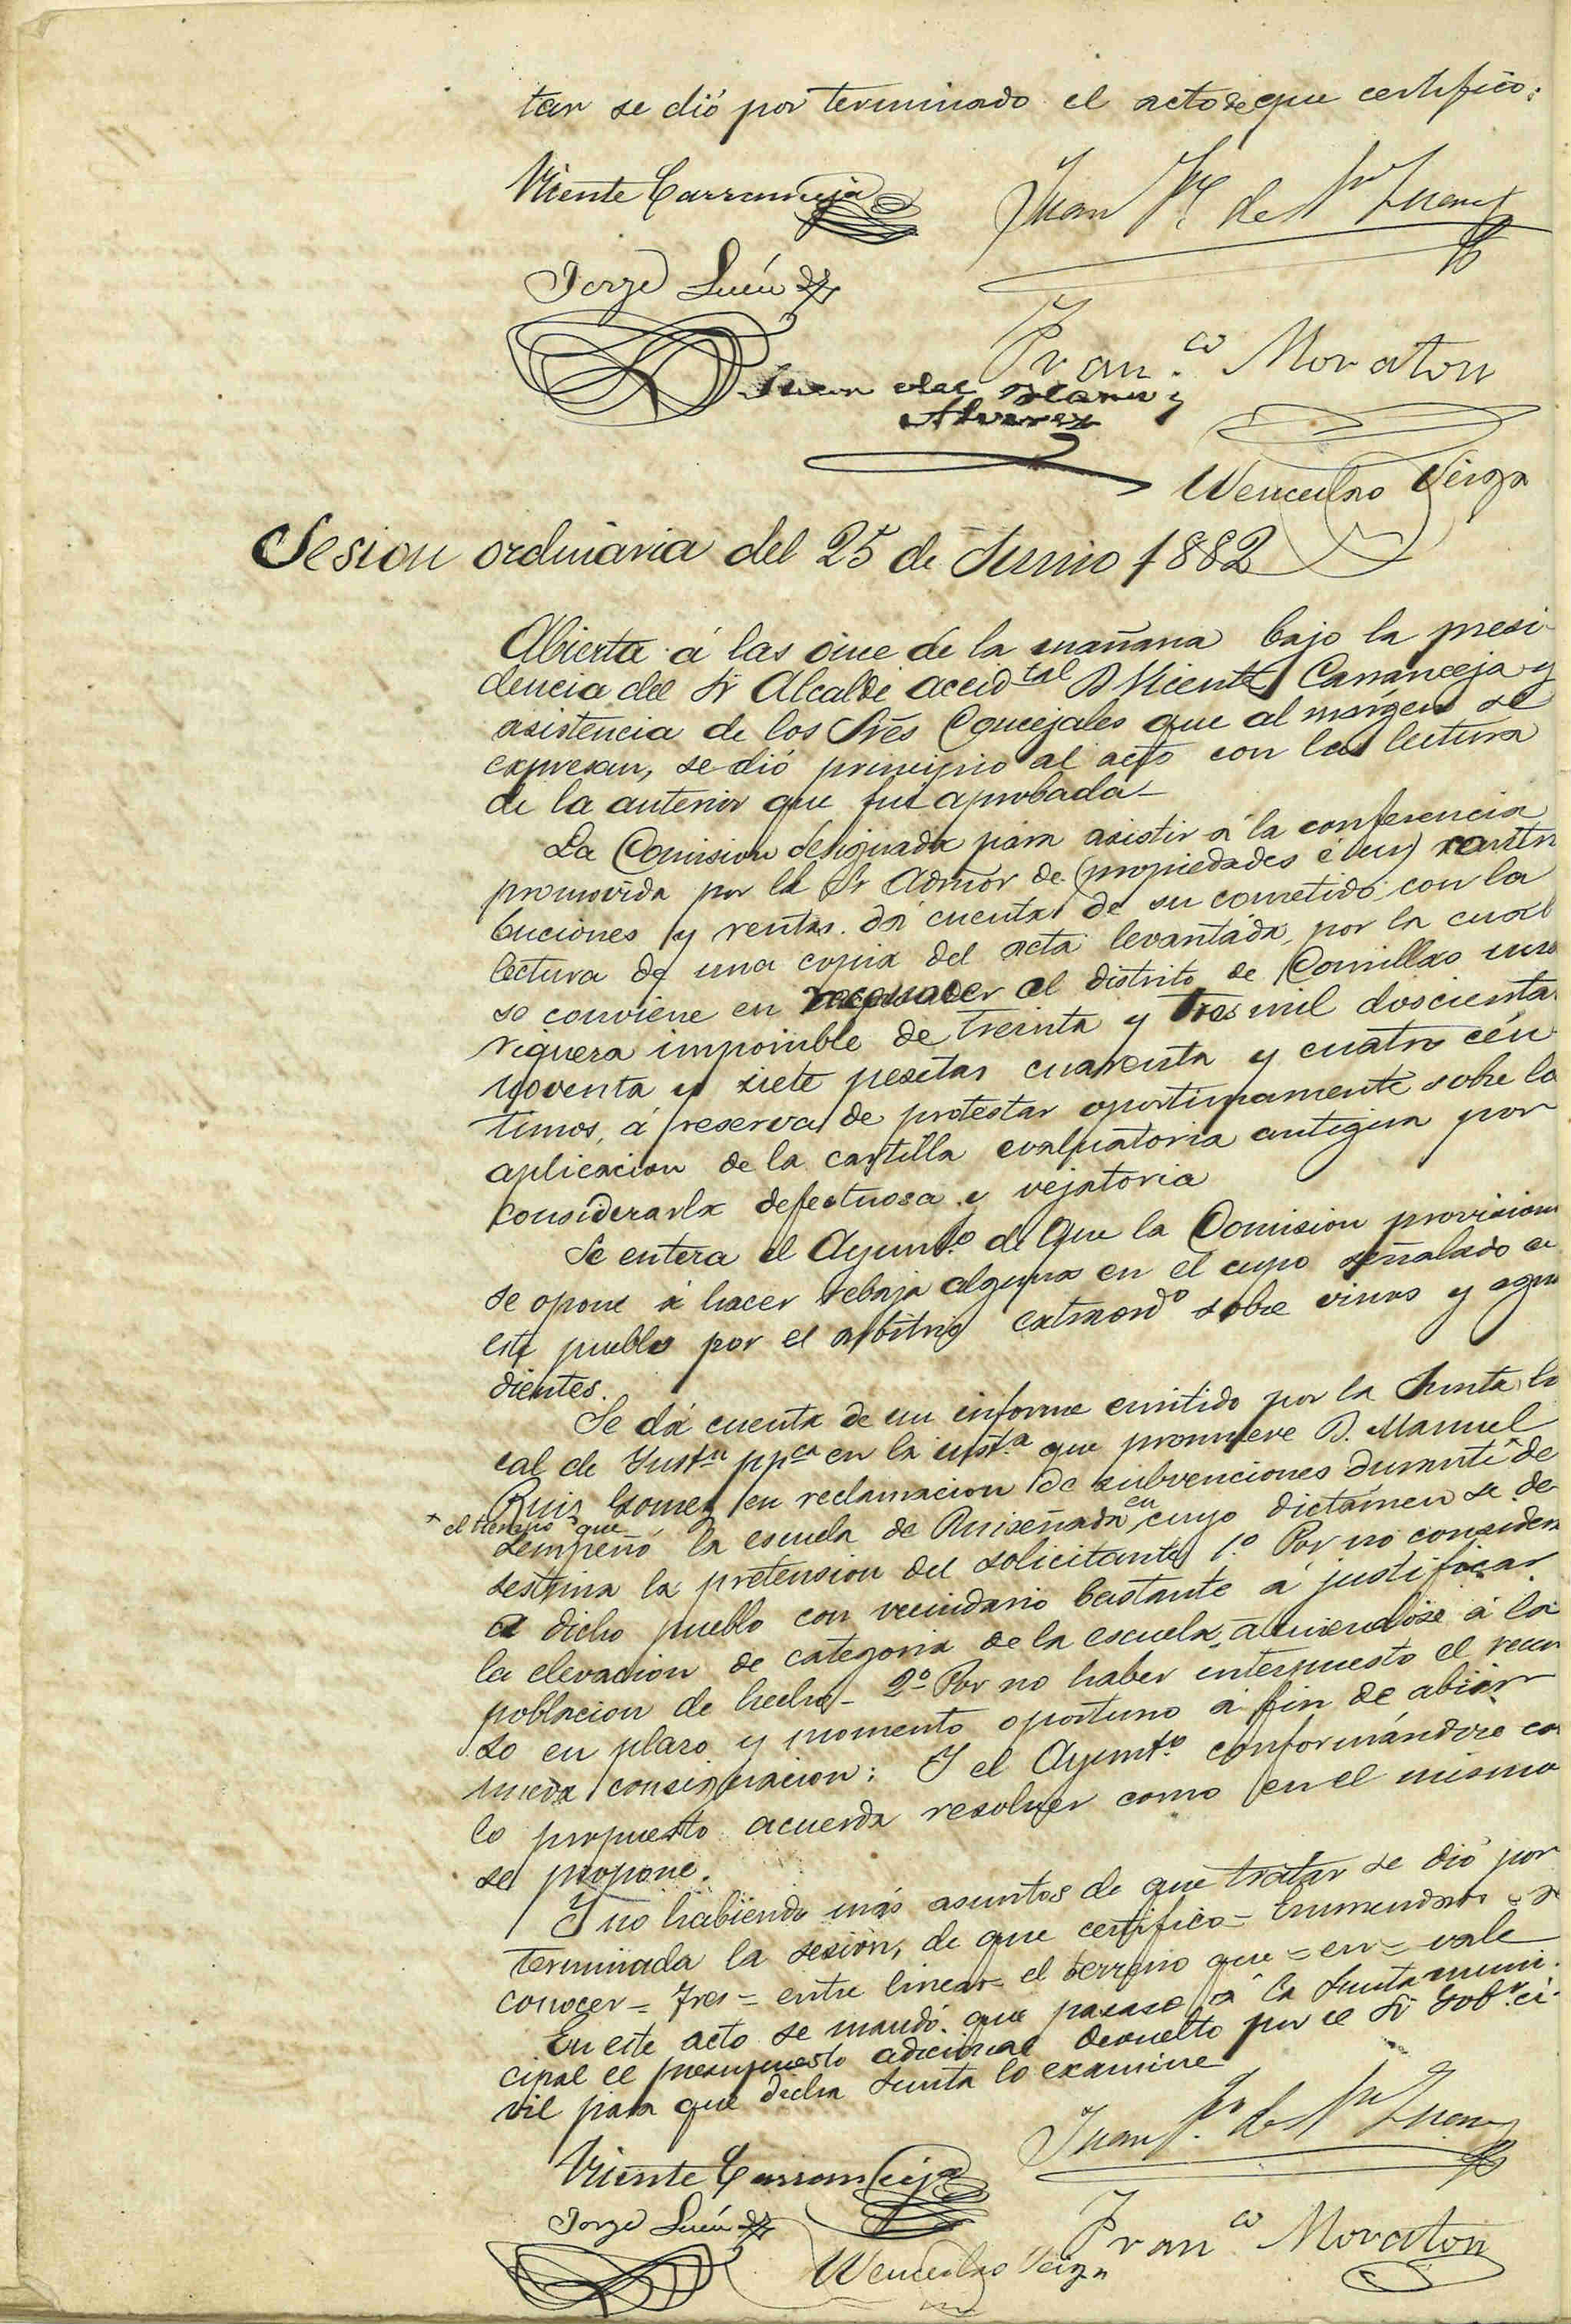 tar se dió por terminado el acto de que certifico:
Vicente Carranceja
Juan de
Jorge
Fran.co Moraton
Juan del
Alvarez
Wenceslao Veiga
Sesion ordinaria del 25 de Junio 1882
Abierta á las once de la mañana bajo la presi
dencia del Sr Alcalde accidtal D Vicente Carranceja y
asistencia de los Srēs Concejales que al margen se
expresan, se dió principio al acto con la lectura
de la anterior que fue aprobada-
La Comision designada para asistir á la conferencia
promovida por el Sr Admor de (propiedades é im) contri
buciones y rentas. dá cuenta de su cometido con la
lectura de una copia del acta levantada, por la cual
se conviene en reconocer al distrito de Comillas una
riquera imponible de treinta y tres mil doscienta
noventa y siete pesetas cuarenta y cuatro cén
timos, á reserva de protestar oportunamente sobre la
aplicacion de la cartilla evaluatoria antigua por
considerarla defectuosa y vejatoria
Se entera el Ayunto de que la Comision provision
se opone á hacer rebaja alguna en el cupo señalado a
este pueblo por el arbitrio extraordo sobre vinos y agua
dientes.
Se dá cuenta de un informe emitido por la Junta lo
cal de Instn ppca en la insta que promueve D. Manuel
Ruiz Gomez en reclamacion de subvenciones durante de
+ el tiempo que
sempeñó la escuela de Ruiseñada en cuyo dictámen se de
sestima la pretension del solicitante 1.o Por no considera
a dicho pueblo con vecindario bastante á justificar
la elevacion de categoria de la escuela, atuviendose á la
poblacion de hecho- 2.o Por no haber interpuesto el recur
so en plazo y momento oportuno á fin de abier
nueva consignacion: Y el Ayunto conformándose co
lo propuesto acuerda resolver como en el mismo
se propone.
Y no habiendo más asuntos de que tratar se dió por
terminada la sesion, de que certifico= Enmendado=
conocer= Tres= entre lineas= el tiempo que= en= vale
En este acto se mandó que pasase á la Junta muni.
cipal el presupuesto adicional devuelto por el Sr Gobr ci-
vil para que dicha Junta lo examine
Juan de
Vicente Carranceja
Jorge
Fran.co Moraton
Wenceslao Veiga